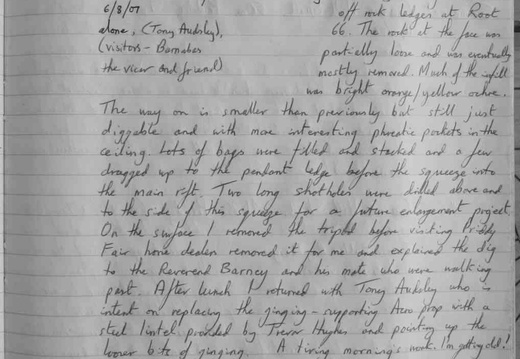 6/8/07
alone, (Tony Audsley),
(visitors - Barnabas
the vicar and friend)
off rock ledges at Root
66. The rock at the face was
partially loose and was eventually
mostly removed. Much of the infill
was bright orange/yellow ochre.
The way on is smaller than previously but still just
diggable and with more interesting phreatic pockets in the
ceiling. Lots of bags were filled and stacked and a few
dragged up to the pendant ledge before the squeeze into
the main rift. Two long shotholes were drilled above and
to the side of this squeeze for a future enlargement project.
On the surface I removed the tripod before visiting Priddy
Fair horse dealers removed it for me and explained the dig
to the Reverend Barney and his mate who were walking
past. After lunch I returned with Tony Audsley who is
intent on replacing the ginging-supporting Acro prop with a
steel lintel provided by Trevor Hughes and pointing up the
looser bits of ginging. A tiring morning's work. I'm getting old!